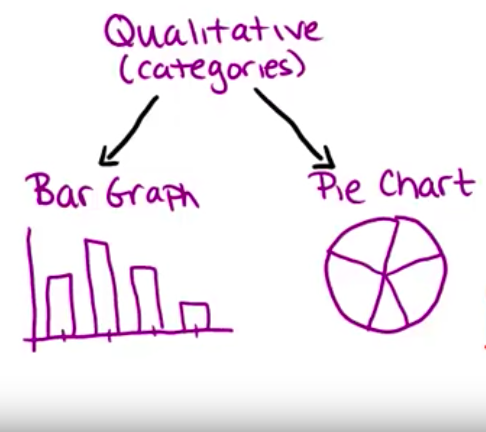 Qualitative
(categories)
Bar Graph
Pie Chart